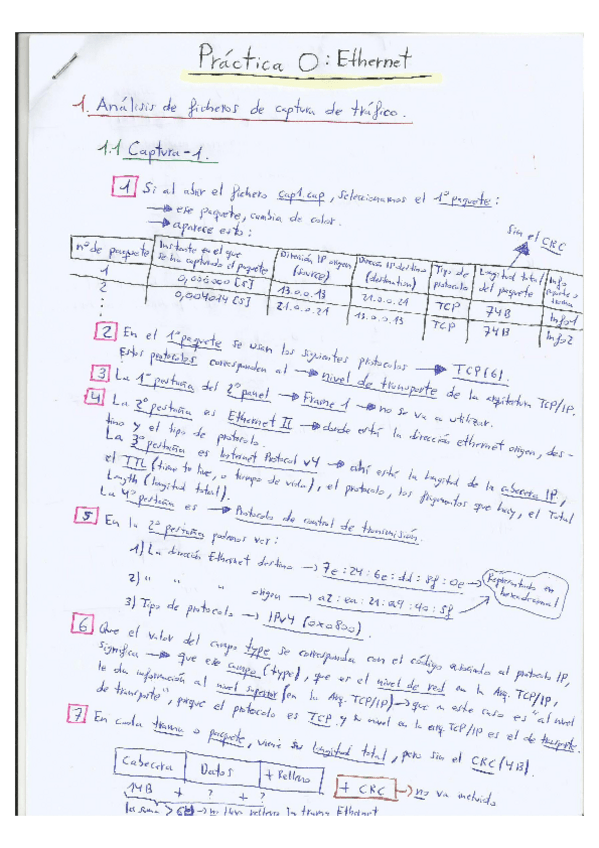 Práctica 0: Ethernet
1. Análisis de ficheros de captura de tráfico.
1.1 Captura-1.
1 Si al abrir el fichero cap1.cap, seleccionamos el 1º paquete:
→ ese paquete, cambia de color.
→ aparece esto:
sin el CRC
nº de paquete | Instante en el que se ha capturado el paquete | Dirección IP origen (source) | Dirección IP destino (destination) | Tipo de protocolo | Longitud total del paquete | Info
1 | 0,000000 [s] | 13.0.0.13 | 21.0.0.21 | TCP | 74B | Info1
2 | 0,004014 [s] | 21.0.0.21 | 13.0.0.13 | TCP | 74B | Info2
2 En el 1º paquete se usan los siguientes protocolos → TCP (6).
Estos protocolos corresponden al → nivel de transporte de la arquitectura TCP/IP.
3 La 1ª pestaña del 2º panel → Frame 1 → no se va a utilizar.
4 La 2ª pestaña es Ethernet II → donde está la dirección ethernet origen, des-
tino y el tipo de protocolo.
La 3ª pestaña es Internet Protocol v4 → ahí está la longitud de la cabecera IP,
el TTL (time to live, o tiempo de vida), el protocolo, los fragmentos que hay, el Total
Length (longitud total).
La 4ª pestaña es → Protocolo de control de transmisión.
5 En la 2ª pestaña podemos ver:
1) La dirección Ethernet destino → 7e:24:6e:dd:8f:0e
Representado en hexadecimal
2) " " " origen → a2:ea:21:a9:40:5f
3) Tipo de protocolo → IPv4 (0x0800).
6 Que el valor del campo type se corresponda con el código asociado al protocolo IP,
significa → que ese campo (type), que es el nivel de red en la Arq. TCP/IP,
le da información al nivel superior (en la Arq. TCP/IP) → que en este caso es "al nivel
de transporte", porque el protocolo es TCP y su nivel en la arq. TCP/IP es el de transporte.
7 En cada trama o paquete, viene su longitud total, pero sin el CRC (4B).
Cabecera | Datos | + Relleno | + CRC → no va incluido
14B + ? + ?